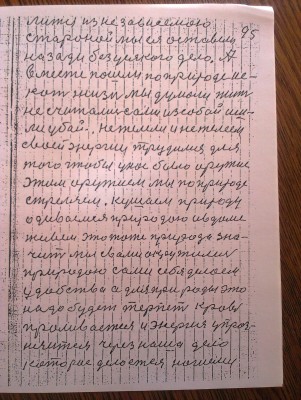 литу из независемою 95
стороной мы ся оставим
назади без уякого дело, А
вместе пошли по природе не-
кот жизн мы думоли жит
не считали сами из собой или
ли убай-, нетелем и нетелеем
своей энергии трудился для
того чтобы у нас было оружие
этим оружием мы по природе
стреляем. кушаем природу
одиваемся природою в доме
живем это тоже природа зна-
чит мы сваими окрутили
природою сами себя делаем
удобства а для природы это
надо будет терпет кровь
проливается и энергия упраз-
няится через наша дело
которое делается нашими